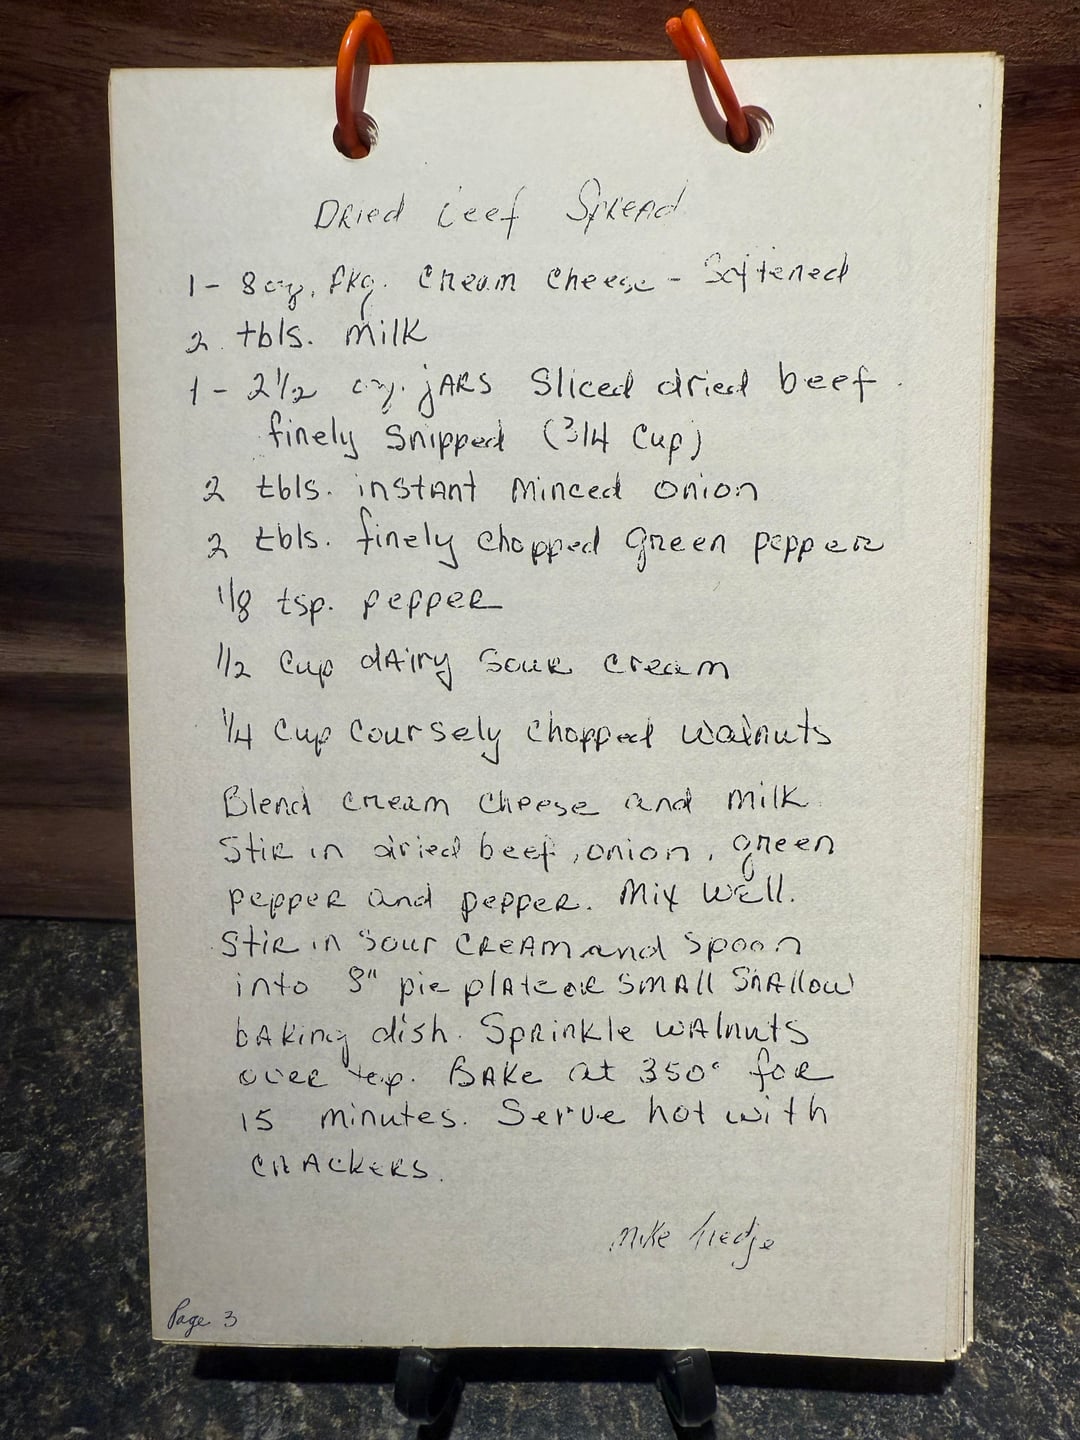 Dried beef Spread
1 - 8 oz. pkg. cream cheese - Softened
2 tbls. milk
1 - 2 1/2 oz. jars Sliced dried beef
finely Snipped (3/4 Cup)
2 tbls. instant minced onion
2 tbls. finely chopped green pepper
1/8 tsp. pepper
1/2 Cup dairy Sour cream
1/4 Cup Coursely chopped walnuts
Blend cream cheese and milk
Stir in dried beef, onion, green
pepper and pepper. Mix well.
Stir in Sour cream and spoon
into 8" pie plate or small shallow
baking dish. Sprinkle walnuts
over top. Bake at 350° for
15 minutes. Serve hot with
crackers.
Mike
Page 3